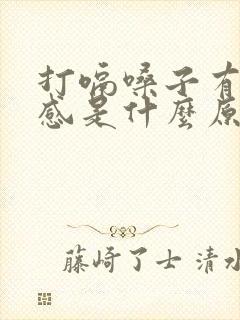 打嗝嗓子有
感是什麼原
藤崎了士 清水